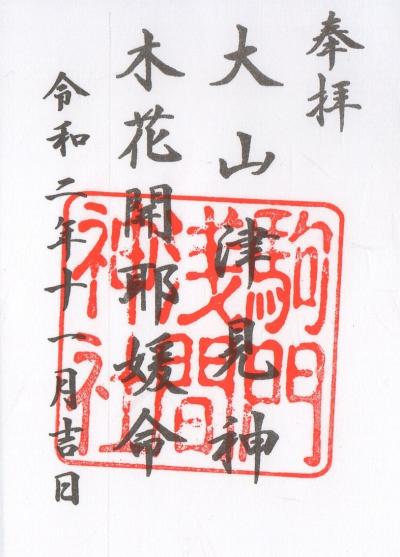 奉拝
大山津見神
木花開耶媛命
令和二年十一月吉日
駒門
浅間
神社